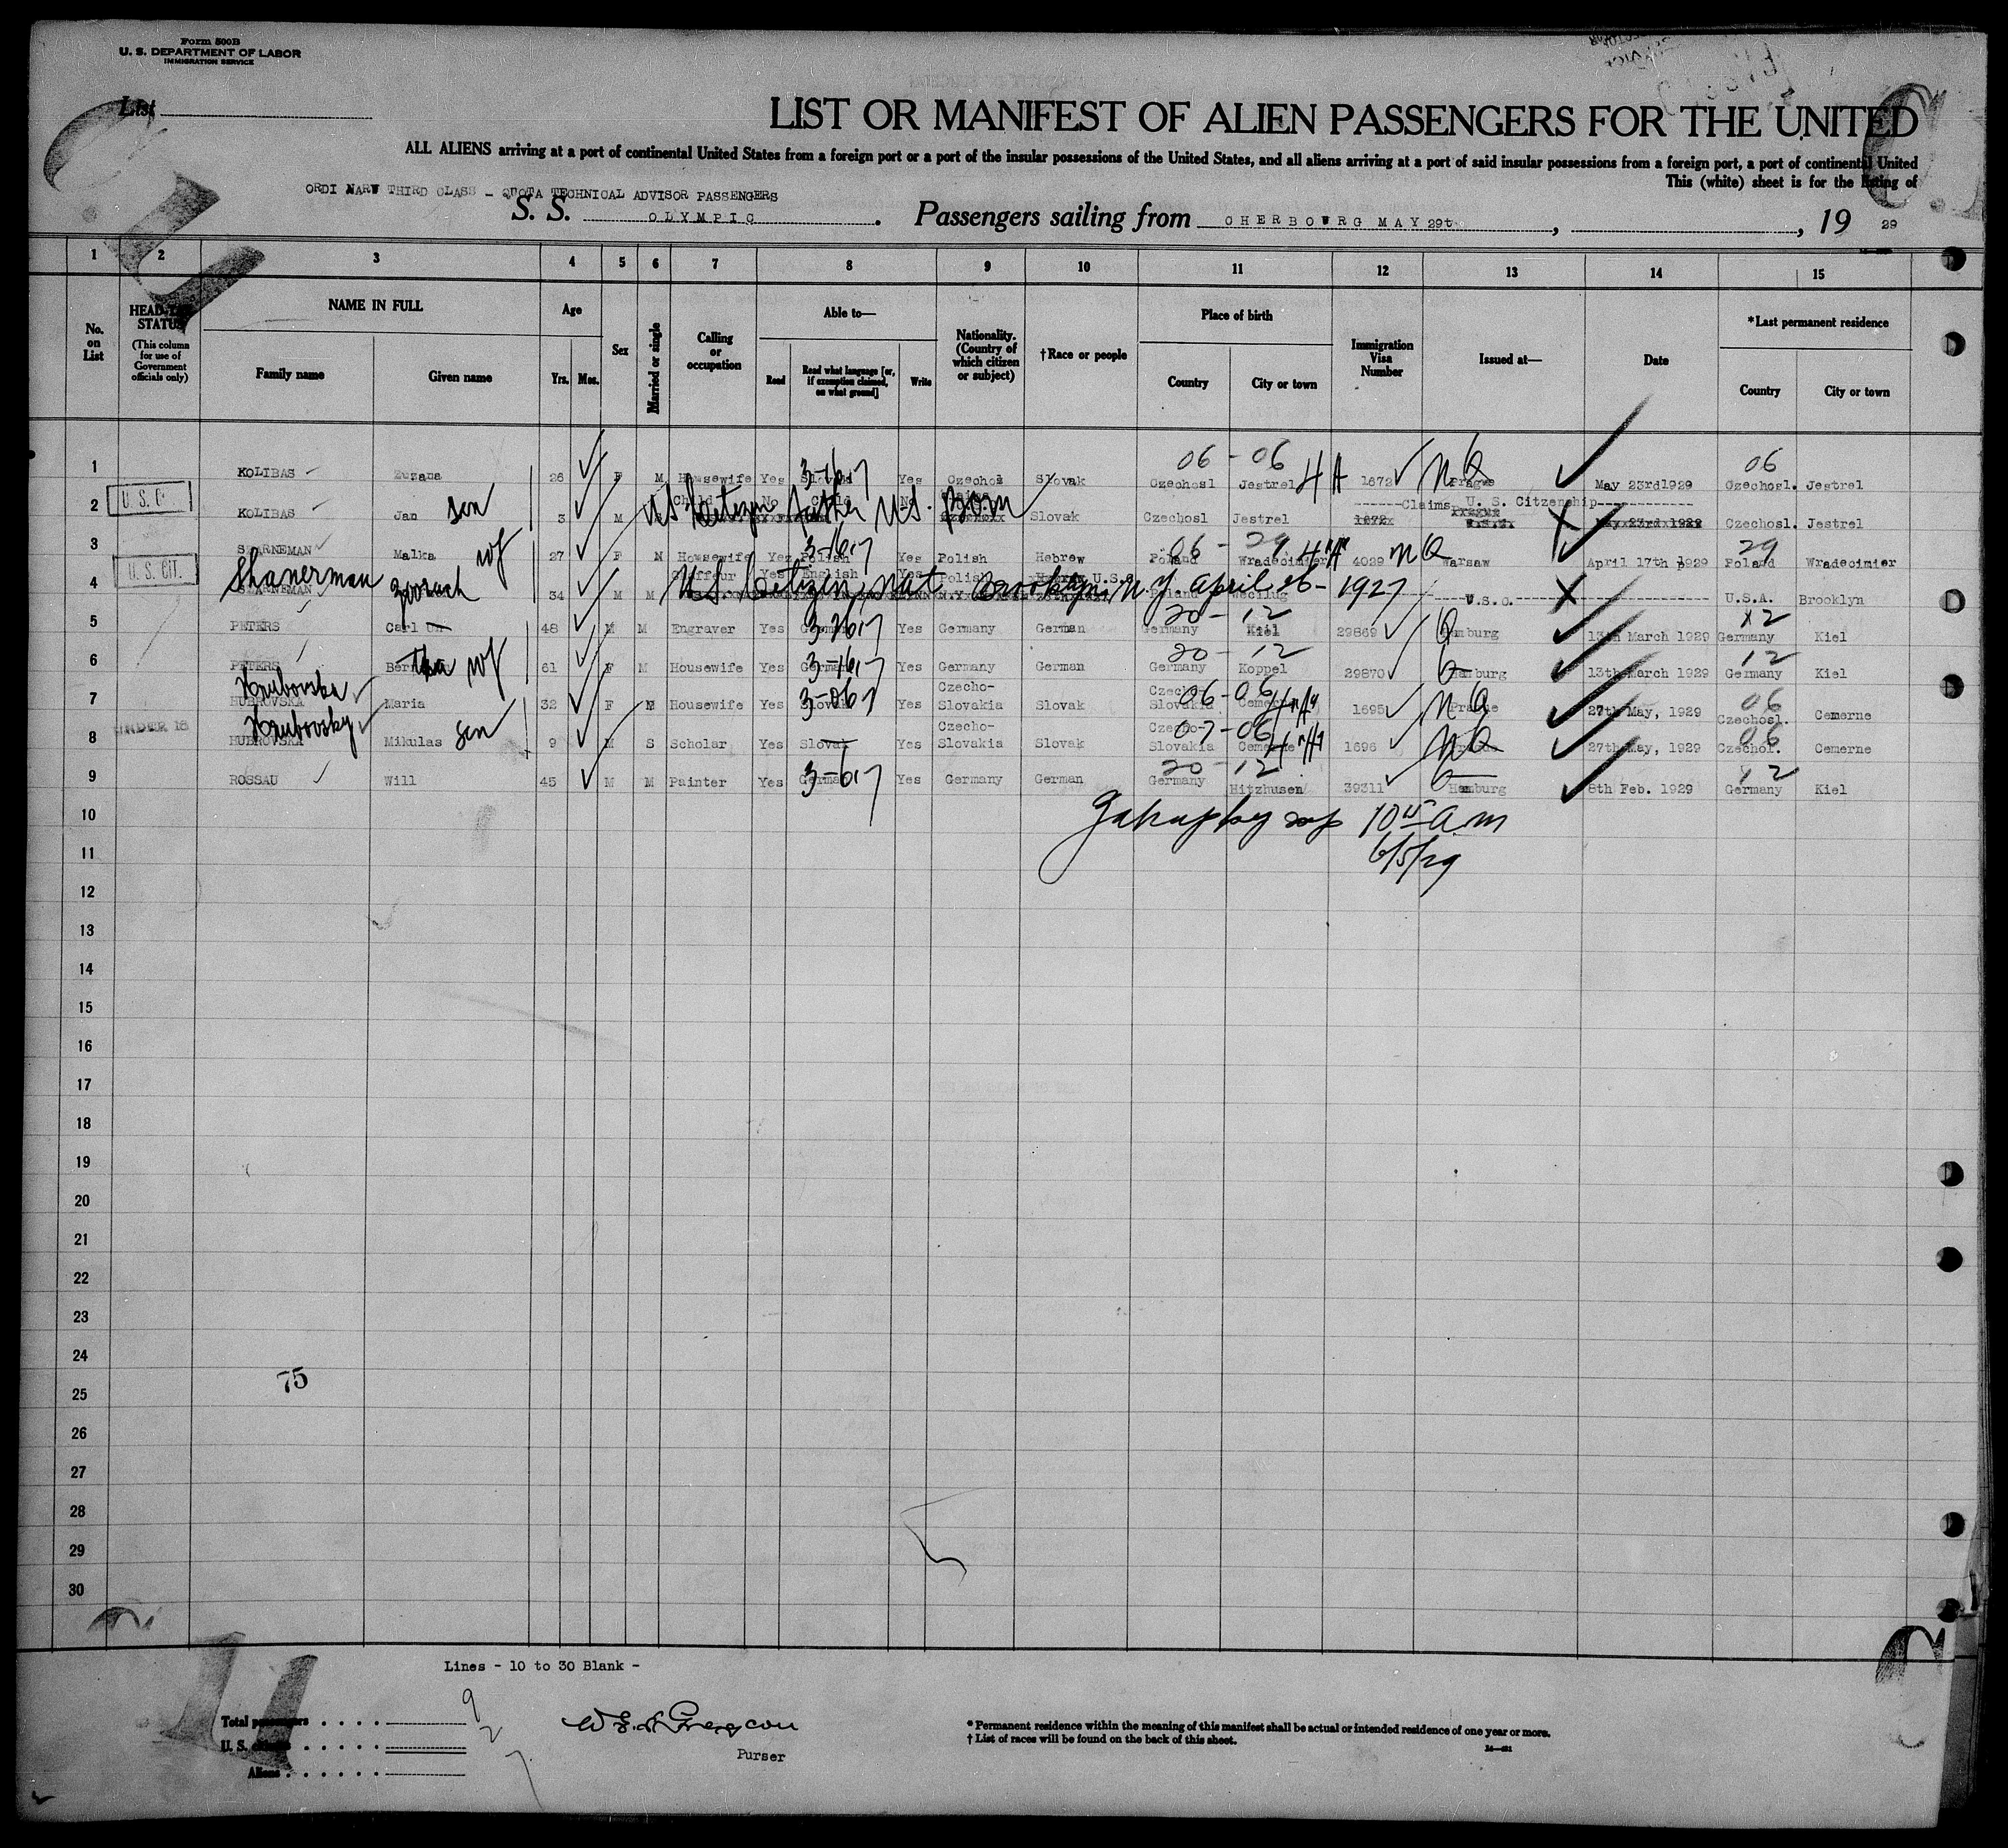 Form 500B
U. S. DEPARTMENT OF LABOR
IMMIGRATION SERVICE
List
LIST OR MANIFEST OF ALIEN PASSENGERS FOR THE UNITED
ALL ALIENS arriving at a port of continental United States from a foreign port or a port of the insular possessions of the United States, and all aliens arriving at a port of said insular possessions from a foreign port, a port of continental United
This (white) sheet is for the listing of
ORDI NARW THIRD CLASS - QUOTA TECHNICAL ADVISOR PASSENGERS
S. S. OLYMPIC. Passengers sailing from CHERBOWRG MAY 29t , , 19 29
1 2 3 4 5 6 7 8 9 10 11 12 13 14 15
No. on List
HEAD-TAX STATUS (This column for use of Government officials only)
NAME IN FULL Family name Given name
Age Yrs. Mos.
Sex
Married or single
Calling or occupation
Able to— Read Read what language [or, if exemption claimed, on what ground] Write
Nationality. (Country of which citizen or subject)
†Race or people
Place of birth Country City or town
Immigration Visa Number
Issued at—
Date
*Last permanent residence Country City or town
06 - 06 06
1 KOLIBAS Zuzana 26 F M Housewife Yes Slovak 3-16-17 Yes Czechos Slovak Czechosl Jestrel 4 A 1672 NQ Pragwe May 23rd1929 Czechosl. Jestrel
Child No Child No
2 U.S.C. KOLIBAS Jan son 3 M S US Citizen Father U.S. Born Slovak Czechosl Jestrel 1672 ---Claims U. S. Citzenship--- Prague U.S.A. May 23rd 1929 Czechosl. Jestrel
06 - 29 29
3 STARNEMAN Malka wf 27 F M Housewife Yes Polish 3-16-17 Yes Polish Hebrew Poland Wradecimier 4029 NQ Warsaw April 17th 1929 Poland Wradecimier
Yes English Yes Polish
4 U.S. CIT. Shanerman STARNEMAN 34 M M U.S. Citizen, Nat. Brooklyn, N.Y. April 26 - 1927 U.S.C. U.S.A. Brooklyn
20 - 12 12
5 PETERS Carl 48 M M Engraver Yes German Yes Germany German Germany Kiel 29869 Q Hamburg 13th March 1929 Germany Kiel
20 - 12 12
6 PETERS Bertha wf 61 F M Housewife Yes German 3-16-17 Yes Germany German Germany Koppel 29870 Hamburg 13th March 1929 Germany Kiel
Hrubovska Czecho- Czecho- 06 - 06 06
7 HUBROVSKA Maria 32 F M Housewife Yes Slovak Yes Slovakia Slovak Slovakia Cemerne 1695 NQ Prague 27th May, 1929 Czechosl. Cemerne
Hrubovsky Czecho- Czecho- 07 - 06 06
8 UNDER 16 HUBROVSKA Mikulas son 9 M S Scholar Yes Slovak Yes Slovakia Slovak Slovakia Cemerne 1696 NQ 27th May, 1929 Czechol. Cemerne
20 - 12 12
9 ROSSAU Will 45 M M Painter Yes German Yes Germany German Germany Hitzhusen 39311 Hamburg 8th Feb. 1929 Germany Kiel
10 10 15 a.m
11 6/5/29
12
13
14
15
16
17
18
19
20
21
22
23
24
75
25
26
27
28
29
30
Lines - 10 to 30 Blank -
Total passengers . . . . 9
U. S. citizens . . . . . 2
Aliens . . . . . . 7
Purser
* Permanent residence within the meaning of this manifest shall be actual or intended residence of one year or more.
† List of races will be found on the back of this sheet.